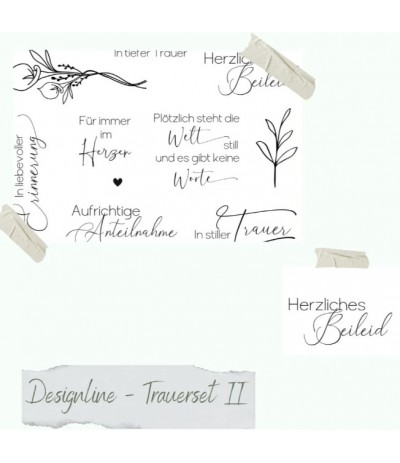 In tiefer Trauer
Herzliches
Beileid
In liebevoller
Erinnerung
Für immer
im
Herzen
Plötzlich steht die
Welt
still
und es gibt keine
Worte
Aufrichtige
Anteilnahme
In stiller Trauer
Herzliches
Beileid
Designline - Trauerset II